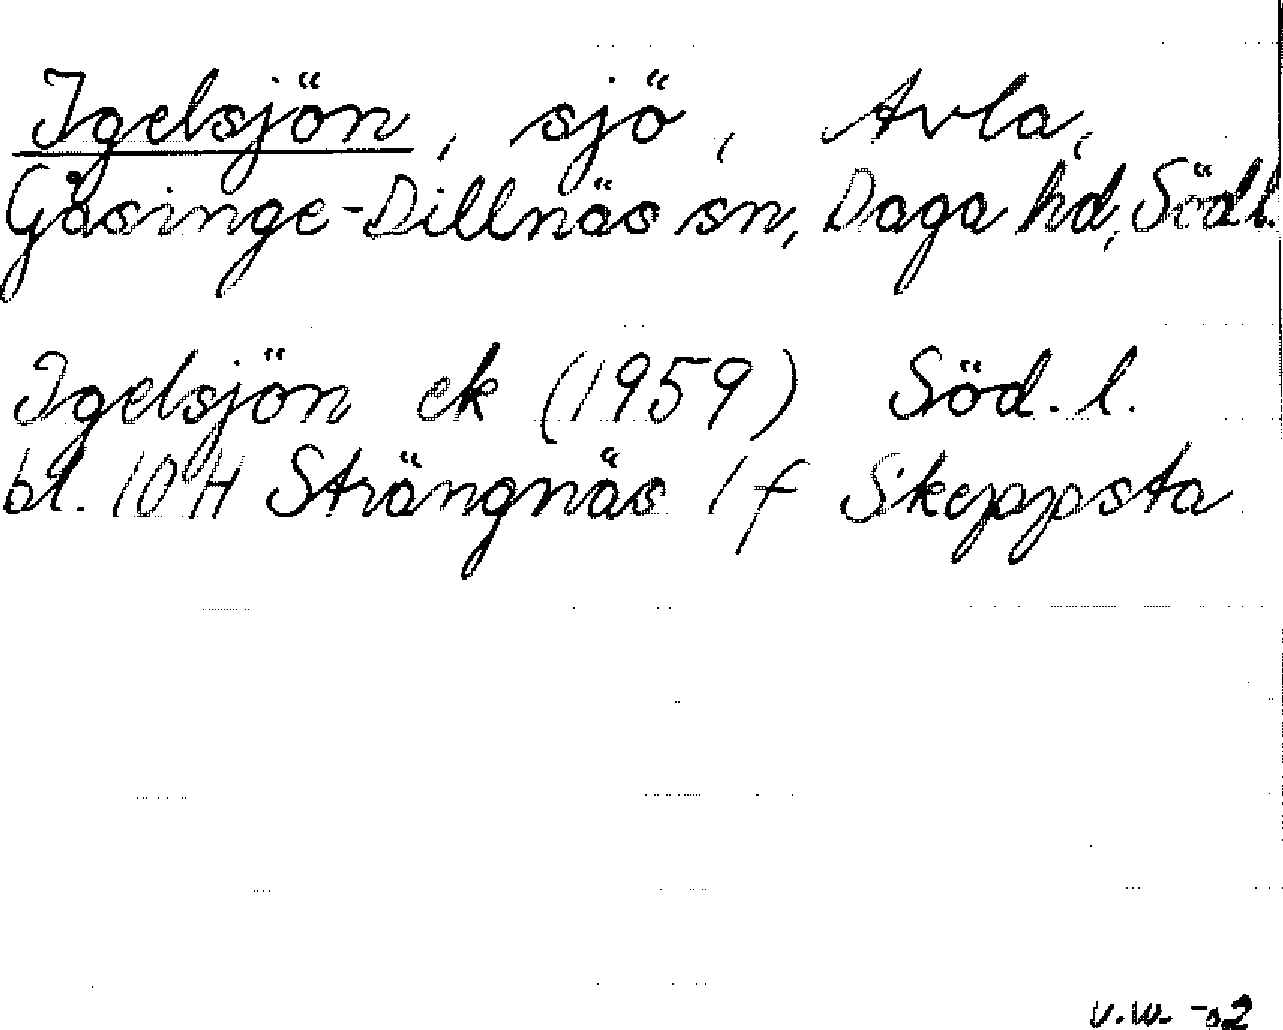 Igelsjön, sjö, Avla,
Gåsinge-Dillnäs sn, Daga hd, Södl.
Igelsjön ek (1959) Söd. l.
bl. 10 H Strängnäs 1 f Skeppsta
v.w. -82